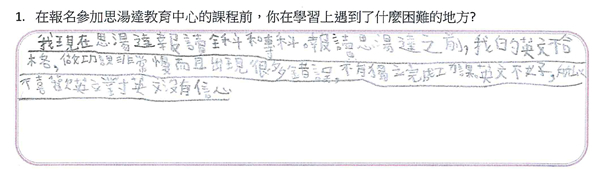 1. 在報名參加思湯達教育中心的課程前，你在學習上遇到了什麼困難的地方?
我現在思湯達報讀全科和專科。報讀思湯達之前，我的英文不合
格，做功課非常慢而且出現很多錯誤。不有獨立完成工 英文不太好，所以
不喜歡英文對英文沒有信心